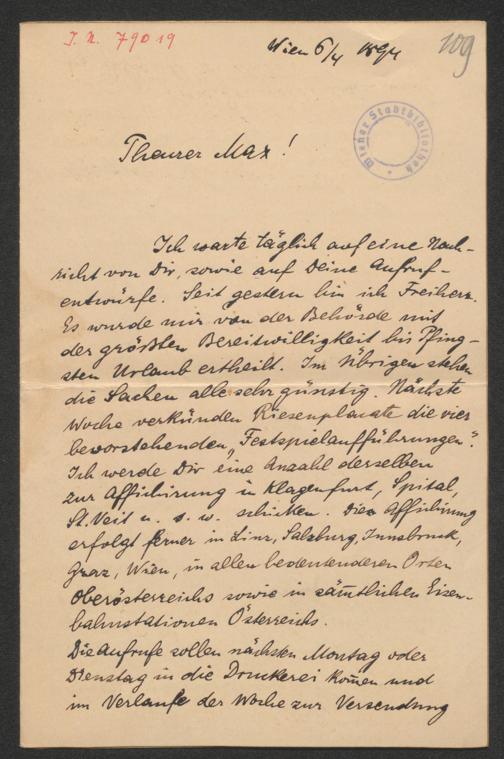 I. N. 79019
Wien 6/4 1894
109
Wiener Stadtbibliothek
Theurer Max!
Ich warte täglich auf eine Nach-
richt von Dir, sowie auf Deine Aufruf-
entwürfe. Seit gestern bin ich Freiherr.
Es wurde mir von der Behörde mit
der größten Bereitwilligkeit bis Pfing-
sten Urlaub ertheilt. Im Übrigen stehen
die Sachen alle sehr günstig. Nächste
Woche verkünden Riesenplacate die vier
bevorstehenden „Festspielaufführungen".
Ich werde Dir eine Anzahl derselben
zur Affichirung in Klagenfurt, Spital,
St. Veit u. s. w. schicken. Die Affichirung
erfolgt ferner in Linz, Salzburg, Innsbruck,
Graz, Wien, in allen bedeutenderen Orten
Oberösterreichs sowie in säm̄tlichen Eisen-
bahnstationen Österreichs.
Die Aufrufe sollen nächsten Montag oder
Dienstag in die Druckerei kom̄en und
im Verlaufe der Woche zur Versendung